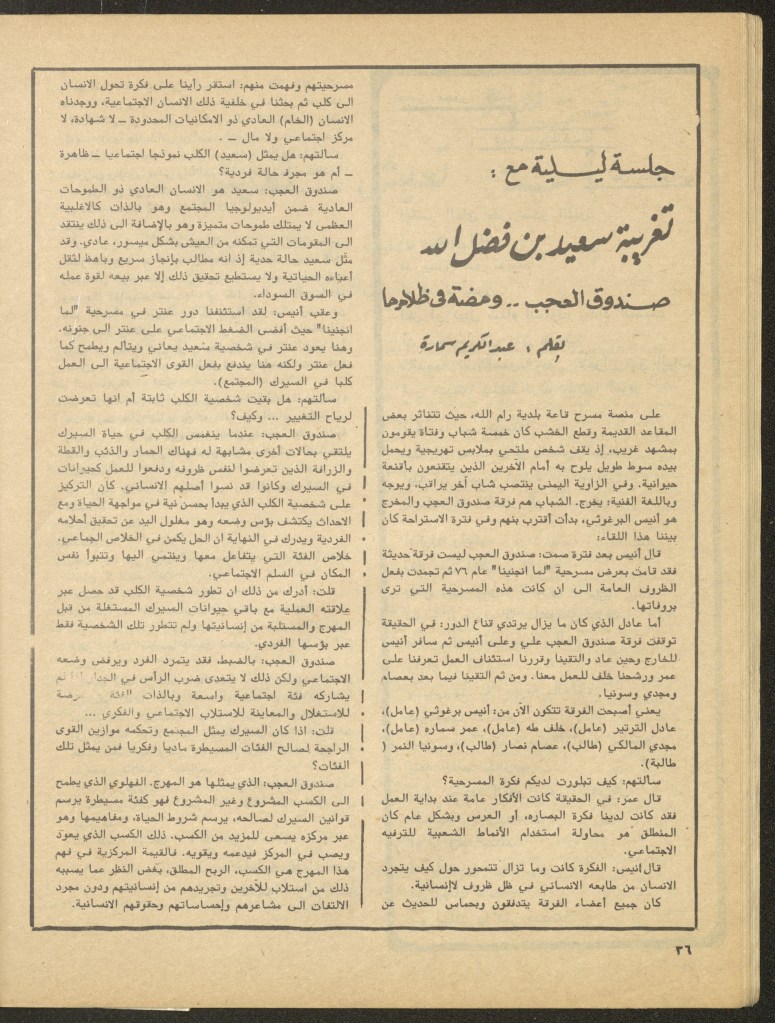 جلسة ليلية مع :
تغريبة سعيد بن فضل الله
صندوق العجب .. ومضة في ظلامها
بقلم : عبد الكريم سمارة
على منصة مسرح قاعة بلدية رام الله، حيث تتناثر بعض
المقاعد القديمة وقطع الخشب كان خمسة شباب وفتاة يقومون
بمشهد غريب، إذ يقف شخص ملتحي بملابس تهريجية ويحمل
بيده سوط طويل يلوح به أمام الآخرين الذين يتقنعون بأقنعة
حيوانية. وفي الزاوية اليمنى ينتصب شاب آخر يراقب، ويوجه
وباللغة الفنية: يخرج. الشباب هم فرقة صندوق العجب والمخرج
هو أنيس البرغوثي، بدأت أقترب بنهم وفي فترة الاستراحة كان
بيننا هذا اللقاء:
قال أنيس بعد فترة صمت: صندوق العجب ليست فرقة حديثة
فقد قامت بعرض مسرحية "لما انجنينا" عام ٧٦ ثم تجمدت بفعل
الظروف العامة الى ان كانت هذه المسرحية التي ترى
بروفاتها.
أما عادل الذي كان ما يزال يرتدي قناع الدور: في الحقيقة
توقفت فرقة صندوق العجب علي وعلى أنيس ثم سافر أنيس
للخارج وحين عاد والتقينا وقررنا استئناف العمل تعرفنا على
عمر ورشحنا خلف للعمل معنا. ومن ثم التقينا فيما بعد بعصام
ومجدي وسونيا.
يعني أصبحت الفرقة تتكون الآن من: أنيس برغوثي (عامل)،
عادل الترتير (عامل)، خلف طه (عامل)، عمر سماره (عامل)،
مجدي المالكي (طالب)، عصام نصار (طالب)، وسونيا النمر (
طالبة).
سألتهم: كيف تبلورت لديكم فكرة المسرحية؟
قال عمر: في الحقيقة كانت الأفكار عامة عند بداية العمل
فقد كانت لدينا فكرة البصاره، أو العرس وبشكل عام كان
المنطلق هو محاولة استخدام الأنماط الشعبية للترفيه
الاجتماعي.
قال أنيس: الفكرة كانت وما تزال تتمحور حول كيف يتجرد
الانسان من طابعه الانساني في ظل ظروف لاإنسانية.
كان جميع أعضاء الفرقة يتدفقون وبحماس للحديث عن
مسرحيتهم وفهمت منهم: استقر رأينا على فكرة تحول الانسان
الى كلب ثم بحثنا في خلفية ذلك الانسان الاجتماعية، ووجدناه
الانسان (الخام) العادي ذو الامكانيات المحدودة ــ لا شهادة، لا
مركز اجتماعي ولا مال ــ .
سألتهم: هل يمثل (سعيد) الكلب نموذجا اجتماعيا ــ ظاهرة
ــ أم هو مجرد حالة فردية؟
صندوق العجب: سعيد هو الانسان العادي ذو الطموحات
العادية ضمن أيديولوجيا المجتمع وهو بالذات كالاغلبية
العظمى لا يمتلك طموحات متميزة وهو بالإضافة الى ذلك ينتقد
الى المقومات التي تمكنه من العيش بشكل ميسور، عادي. وقد
مثّل سعيد حالة حدية إذ انه مطالب بإنجاز سريع وباهظ لثقل
أعباءه الحياتية ولا يستطيع تحقيق ذلك إلا عبر بيعه لقوة عمله
في السوق السوداء.
وعقب أنيس: لقد استئنفنا دور عنتر في مسرحية "لما
انجنينا" حيث أفضى الضغط الاجتماعي على عنتر الى جنونه.
وهنا يعود عنتر في شخصية سعيد يعاني ويتألم ويطمح كما
فعل عنتر ولكنه هنا يندفع بفعل القوى الاجتماعية الى العمل
كلبا في السيرك (المجتمع).
سألتهم: هل بقيت شخصية الكلب ثابتة أم انها تعرضت
لرياح التغيير ... وكيف؟
صندوق العجب: عندما ينغمس الكلب في حياة السيرك
يلتقي بحالات أخرى مشابهة له فهناك الحمار والذئب والقطة
والزرافة الذين تعرضوا لنفس ظروفه ودفعوا للعمل كحيوانات
في السيرك وكانوا قد نسوا أصلهم الانساني. كان التركيز
على شخصية الكلب الذي يبدأ بحسن نية في مواجهة الحياة ومع
الاحداث يكتشف بؤس وضعه وهو مغلول اليد عن تحقيق أحلامه
الفردية ويدرك في النهاية ان الحل يكمن في الخلاص الجماعي.
خلاص الفئة التي يتفاعل معها وينتمي اليها وتتبوأ نفس
المكان في السلم الاجتماعي.
قلت: أدرك من ذلك ان تطور شخصية الكلب قد حصل عبر
علاقته العملية مع باقي حيوانات السيرك المستغلة من قبل
المهرج والمستلبة من إنسانيتها ولم تتطور تلك الشخصية فقط
عبر بؤسها الفردي.
صندوق العجب: بالضبط، فقد يتمرد الفرد ويرفض وضعه
الاجتماعي ولكن ذلك لا يتعدى ضرب الرأس في الجدار
يشاركه فئة اجتماعية واسعة وبالذات الفئة
للاستغلال والمعاينة للاستلاب الاجتماعي والفكري ...
قلت: اذا كان السيرك يمثل المجتمع وتحكمه موازين القوى
الراجحة لصالح الفئات المسيطرة ماديا وفكريا فمن يمثل تلك
الفئات؟
صندوق العجب: الذي يمثلها هو المهرج. الفهلوي الذي يطمح
الى الكسب المشروع وغير المشروع فهو كفئة مسيطرة يرسم
قوانين السيرك لصالحه، يرسم شروط الحياة، ومفاهيمها وهو
عبر مركزه يسعى للمزيد من الكسب. ذلك الكسب الذي يعود
ويصب في المركز فيدعمه ويقويه. فالقيمة المركزية في فهم
هذا المهرج هي الكسب، الربح المطلق، بغض النظر عما يسببه
ذلك من استلاب للآخرين وتجريدهم من إنسانيتهم ودون مجرد
الالتفات الى مشاعرهم وإحساساتهم وحقوقهم الانسانية.
٣٦